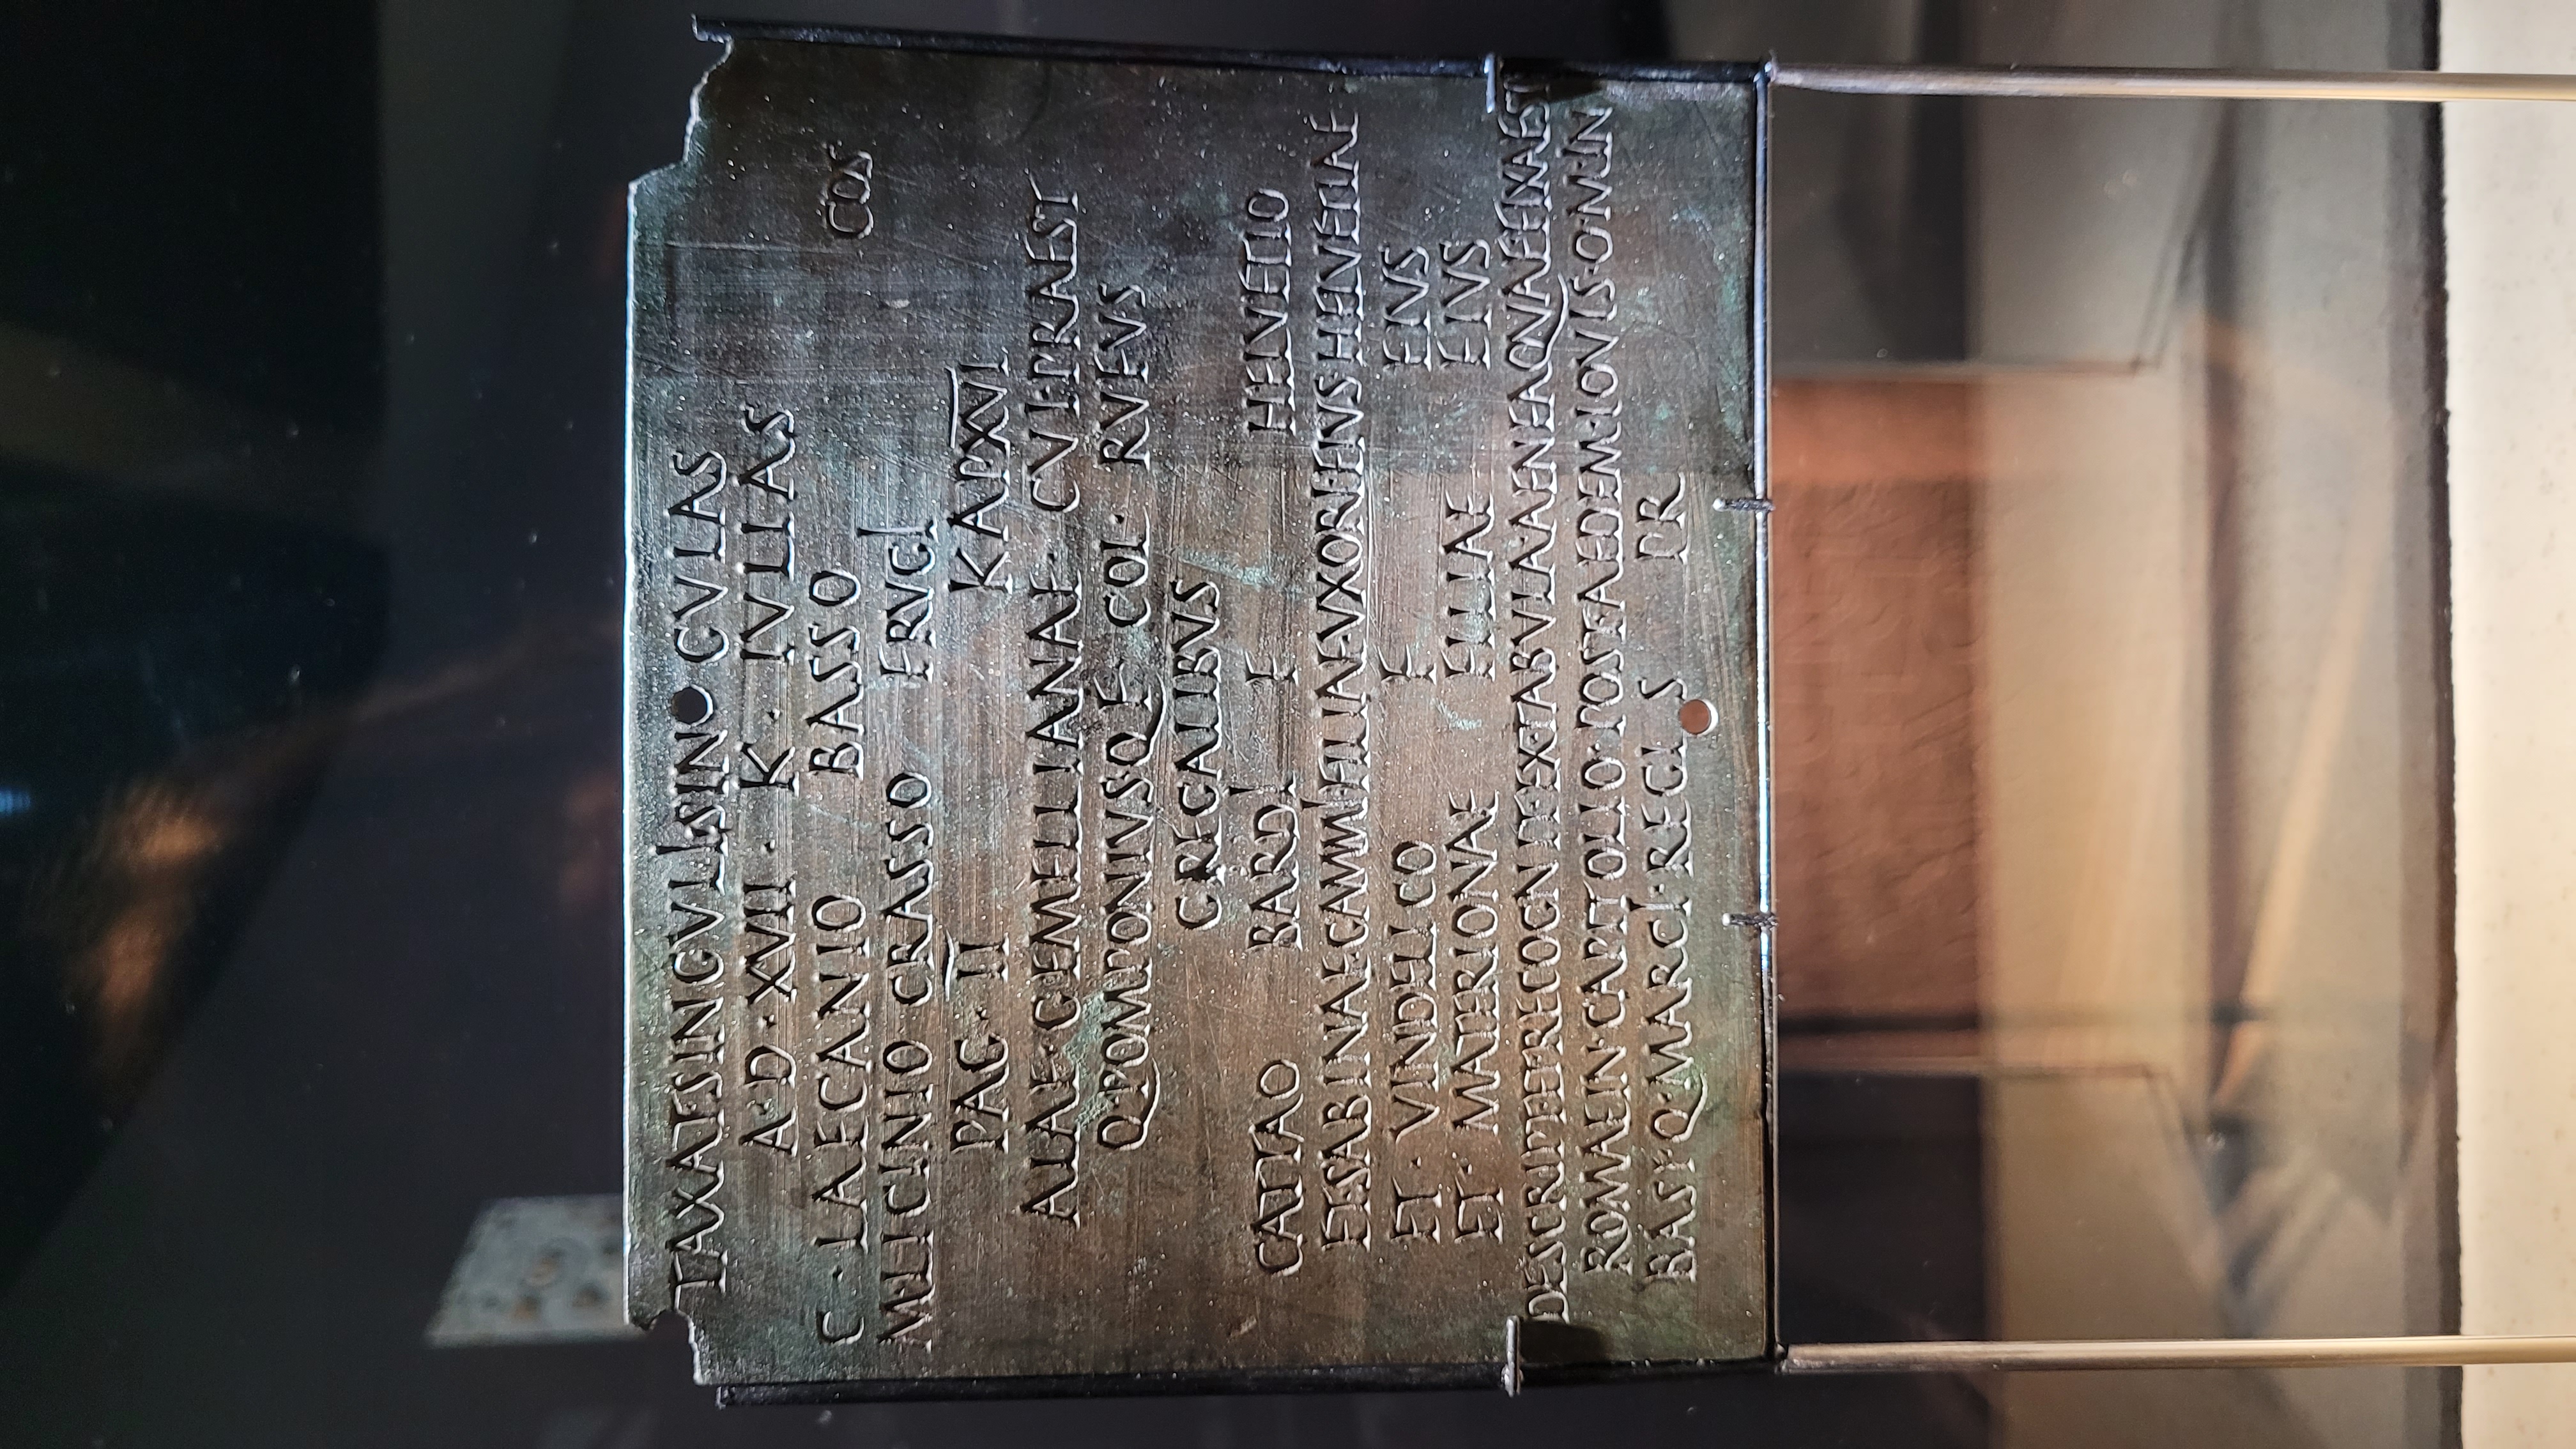 TAXAT SINGVLI SINGVLAS
A · D · XVII · K · IVLIAS
C · LAECANIO BASSO COS
M LICINIO CRASSO FRVGI
PAG · II K A P XVI
ALAE · GEMELLIANAE · CVI PRAEST
Q · POMPONIVS Q F · COL · RVFVS
GREGALIBVS
CATTAO BARDI F HELVETIO
ET SABINAE GAMMI FILIAE VXORI EIVS HELVETIAE
ET · VINDELICO F EIVS
ET · MATERIONAE FILIAE EIVS
DESCRIPT ET RECOGN IT EX TABVLA AHENEA QVAE FIXA EST
ROMAE IN CAPITOLIO · POST AEDEM · IOVIS · O · M · IN
BASI · Q · MARCI · REGIS PR